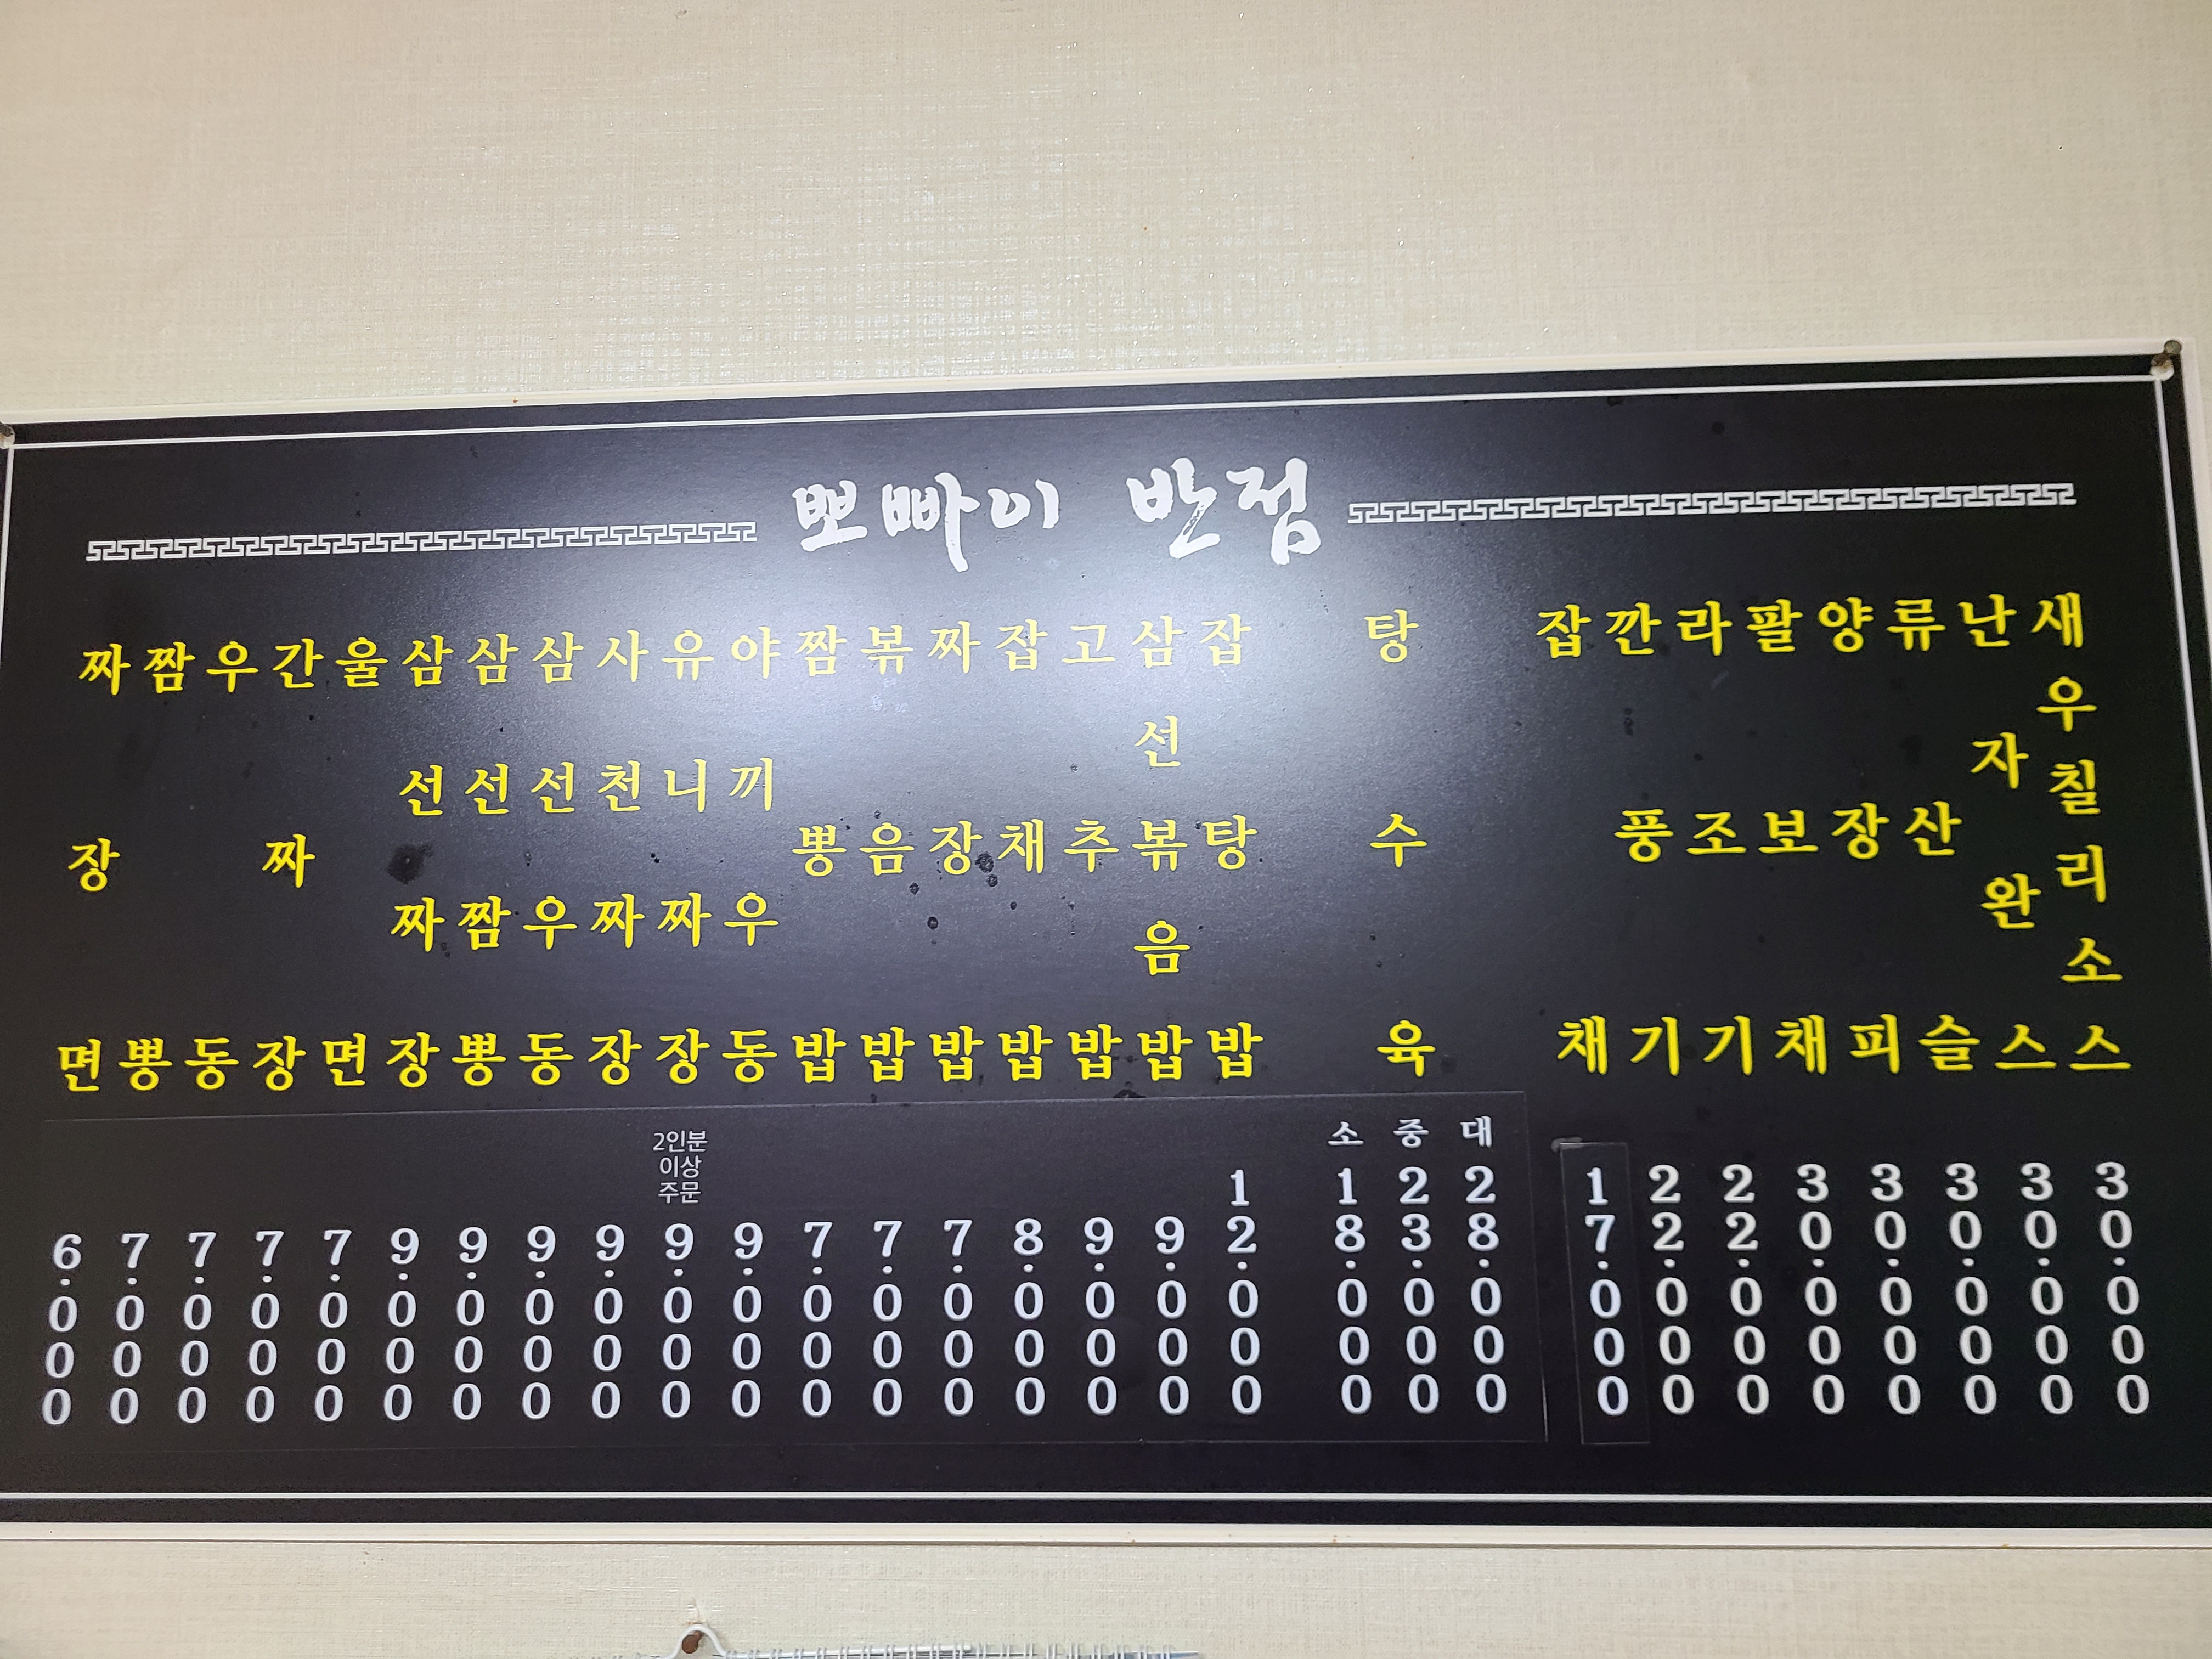 뽀빠이 반점
짜장면 6.000
짬뽕 7.000
우동 7.000
간짜장 7.000
울면 7.000
삼선짜장 9.000
삼선짬뽕 9.000
삼선우동 9.000
사천짜장 9.000
유니짜장 2인분 이상 주문 9.000
야끼우동 9.000
짬뽕밥 7.000
볶음밥 7.000
짜장밥 7.000
잡채밥 8.000
고추밥 9.000
삼선볶음밥 9.000
잡탕밥 12.000
탕수육
소 18.000
중 23.000
대 28.000
잡채 17.000
깐풍기 22.000
라조기 22.000
팔보채 30.000
양장피 30.000
류산슬 30.000
난자완스 30.000
새우칠리소스 30.000